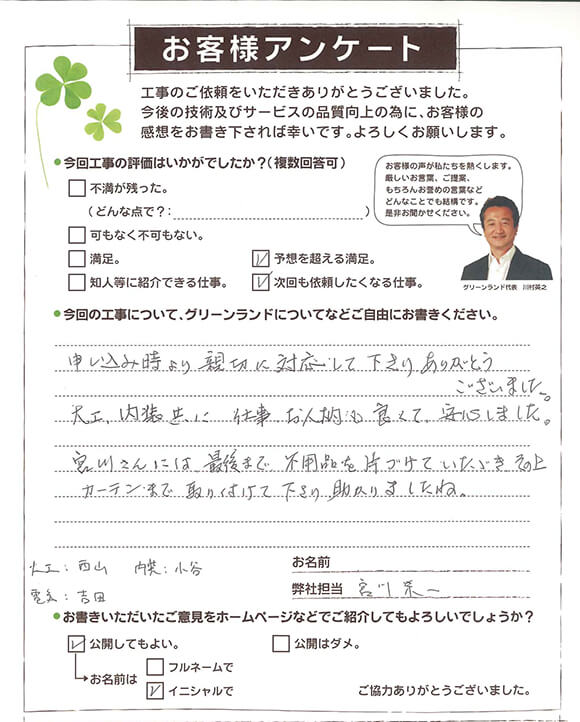 お客様アンケート
工事のご依頼をいただきありがとうございました。
今後の技術及びサービスの品質向上の為に、お客様の
感想をお書き下されば幸いです。よろしくお願いします。
●今回工事の評価はいかがでしたか？(複数回答可)
不満が残った。
(どんな点で？: )
可もなく不可もない。
満足。
予想を超える満足。
知人等に紹介できる仕事。
次回も依頼したくなる仕事。
お客様の声が私たちを熱くします。
厳しいお言葉、ご提案、
もちろんお誉めの言葉など
どんなことでも結構です。
是非お聞かせください。
グリーンランド代表 川村英之
●今回の工事について、グリーンランドについてなどご自由にお書きください。
申し込み時より親切に対応して下さりありがとう
ございました。
大工、内装共に仕事、お人柄も良くて、安心しました。
宮川さんには、最後まで不用品を片づけていただき その上
カーテンまで取り付けて下さり助かりましたね。
大工：西山 内装：小谷
電気：吉田
お名前
弊社担当 宮川栄一
●お書きいただいたご意見をホームページなどでご紹介してもよろしいでしょうか？
公開してもよい。
公開はダメ。
お名前は
フルネームで
イニシャルで
ご協力ありがとうございました。